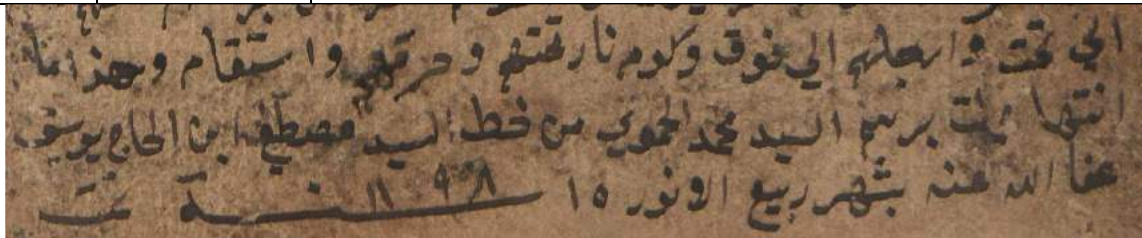 الي تحت وارجلهم الي فوق وكوم نار تحتهم وحرقهم واستقام وهذا ما
انتها برسم السيد محمد الحموي من خط السيد مصطفى ابن الحاج يوسف
عفا الله عنه بشهر ربيع الانور ١٥ سنة ١١٩٨ تمت